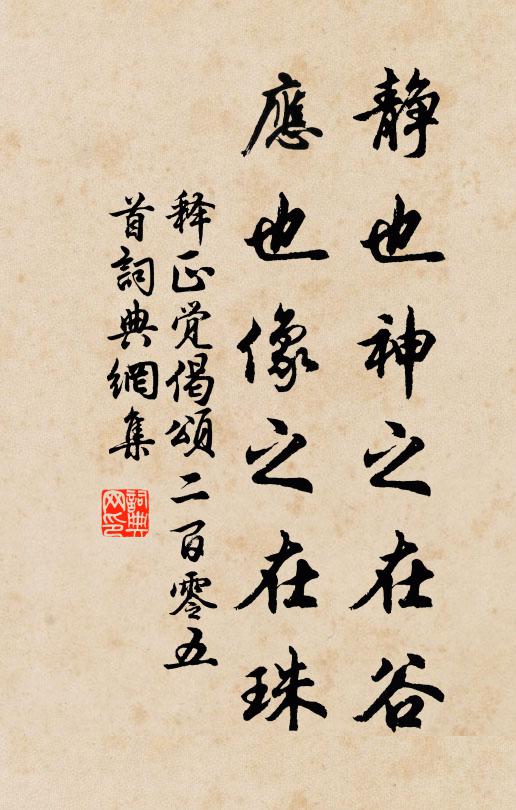 静也神之在谷
應也像之在珠
释正觉偈頌二百零五
首詞典網集
詞典网印